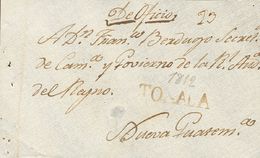 De Oficio 23
A Dn. Franco. Berdugo Secreto.
de Cama. y Govierno de la Rl. Auda.
del Reyno.
1812
TONALA
Nueva Guatema.